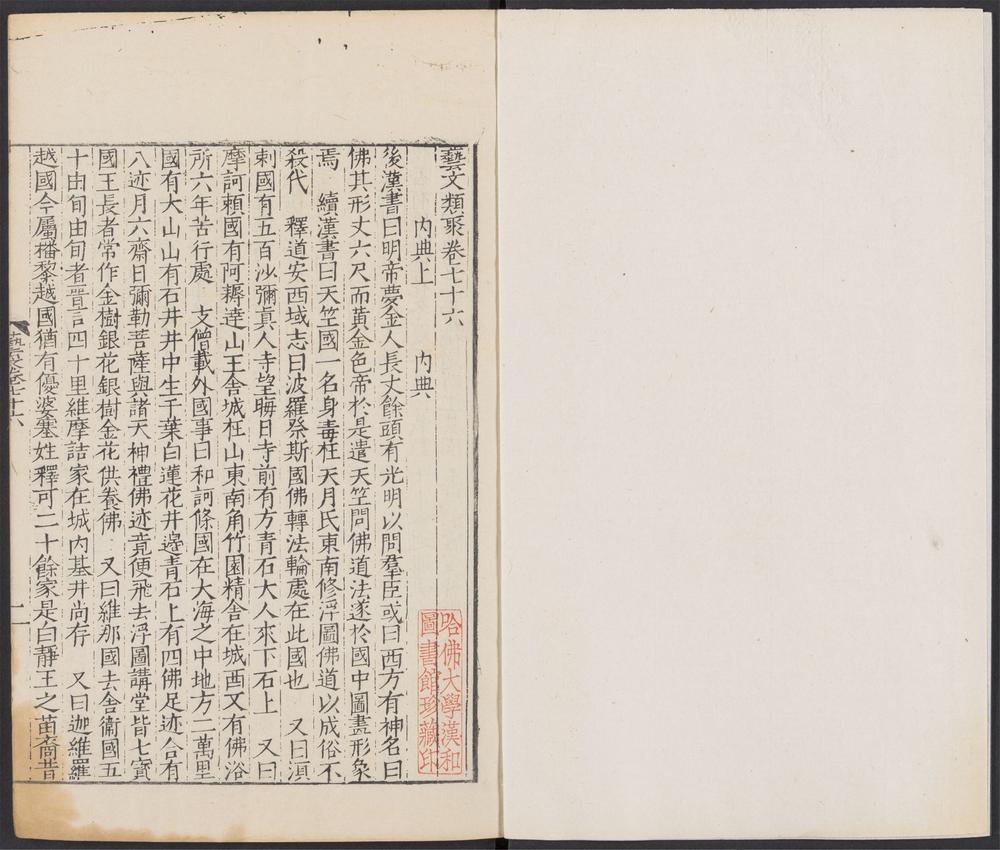 藝文類聚卷七十六
內典上 內典
後漢書曰明帝夢金人長丈餘頭有光明以問羣臣或曰西方有神名曰
佛其形丈六尺而黃金色帝於是遣天竺問佛道法遂於國中圖畫形象
焉 續漢書曰天竺國一名身毒在大月氏東南修浮圖佛道以成俗不
殺代 釋道安西域志曰波羅奈斯國佛轉法輪處在此國也 又曰
剌國有五百沙彌真人寺望晦日寺前有方青石大人來下石上 又曰
摩訶賴國有阿耨達山王舍城在山東南角竹園精舍在城西又有佛浴
所六年苦行處 支僧載外國事曰和訶條國在大海之中地方二萬里
國有大山山有石井井中生千葉白蓮花井邊青石上有四佛足迹合有
八迹月六齋日彌勒菩薩與諸天神禮佛迹竟便飛去浮圖講堂皆七寶
國王長者常作金樹銀花銀樹金花供養佛 又曰維那國去舍衞國五
十由旬由旬者晉言四十里維摩詰家在城內基井尚存 又曰迦維羅
越國今屬播黎越國猶有優婆塞姓釋可二十餘家是白靜王之苗裔昔
哈佛大學漢和
圖書館珍藏印